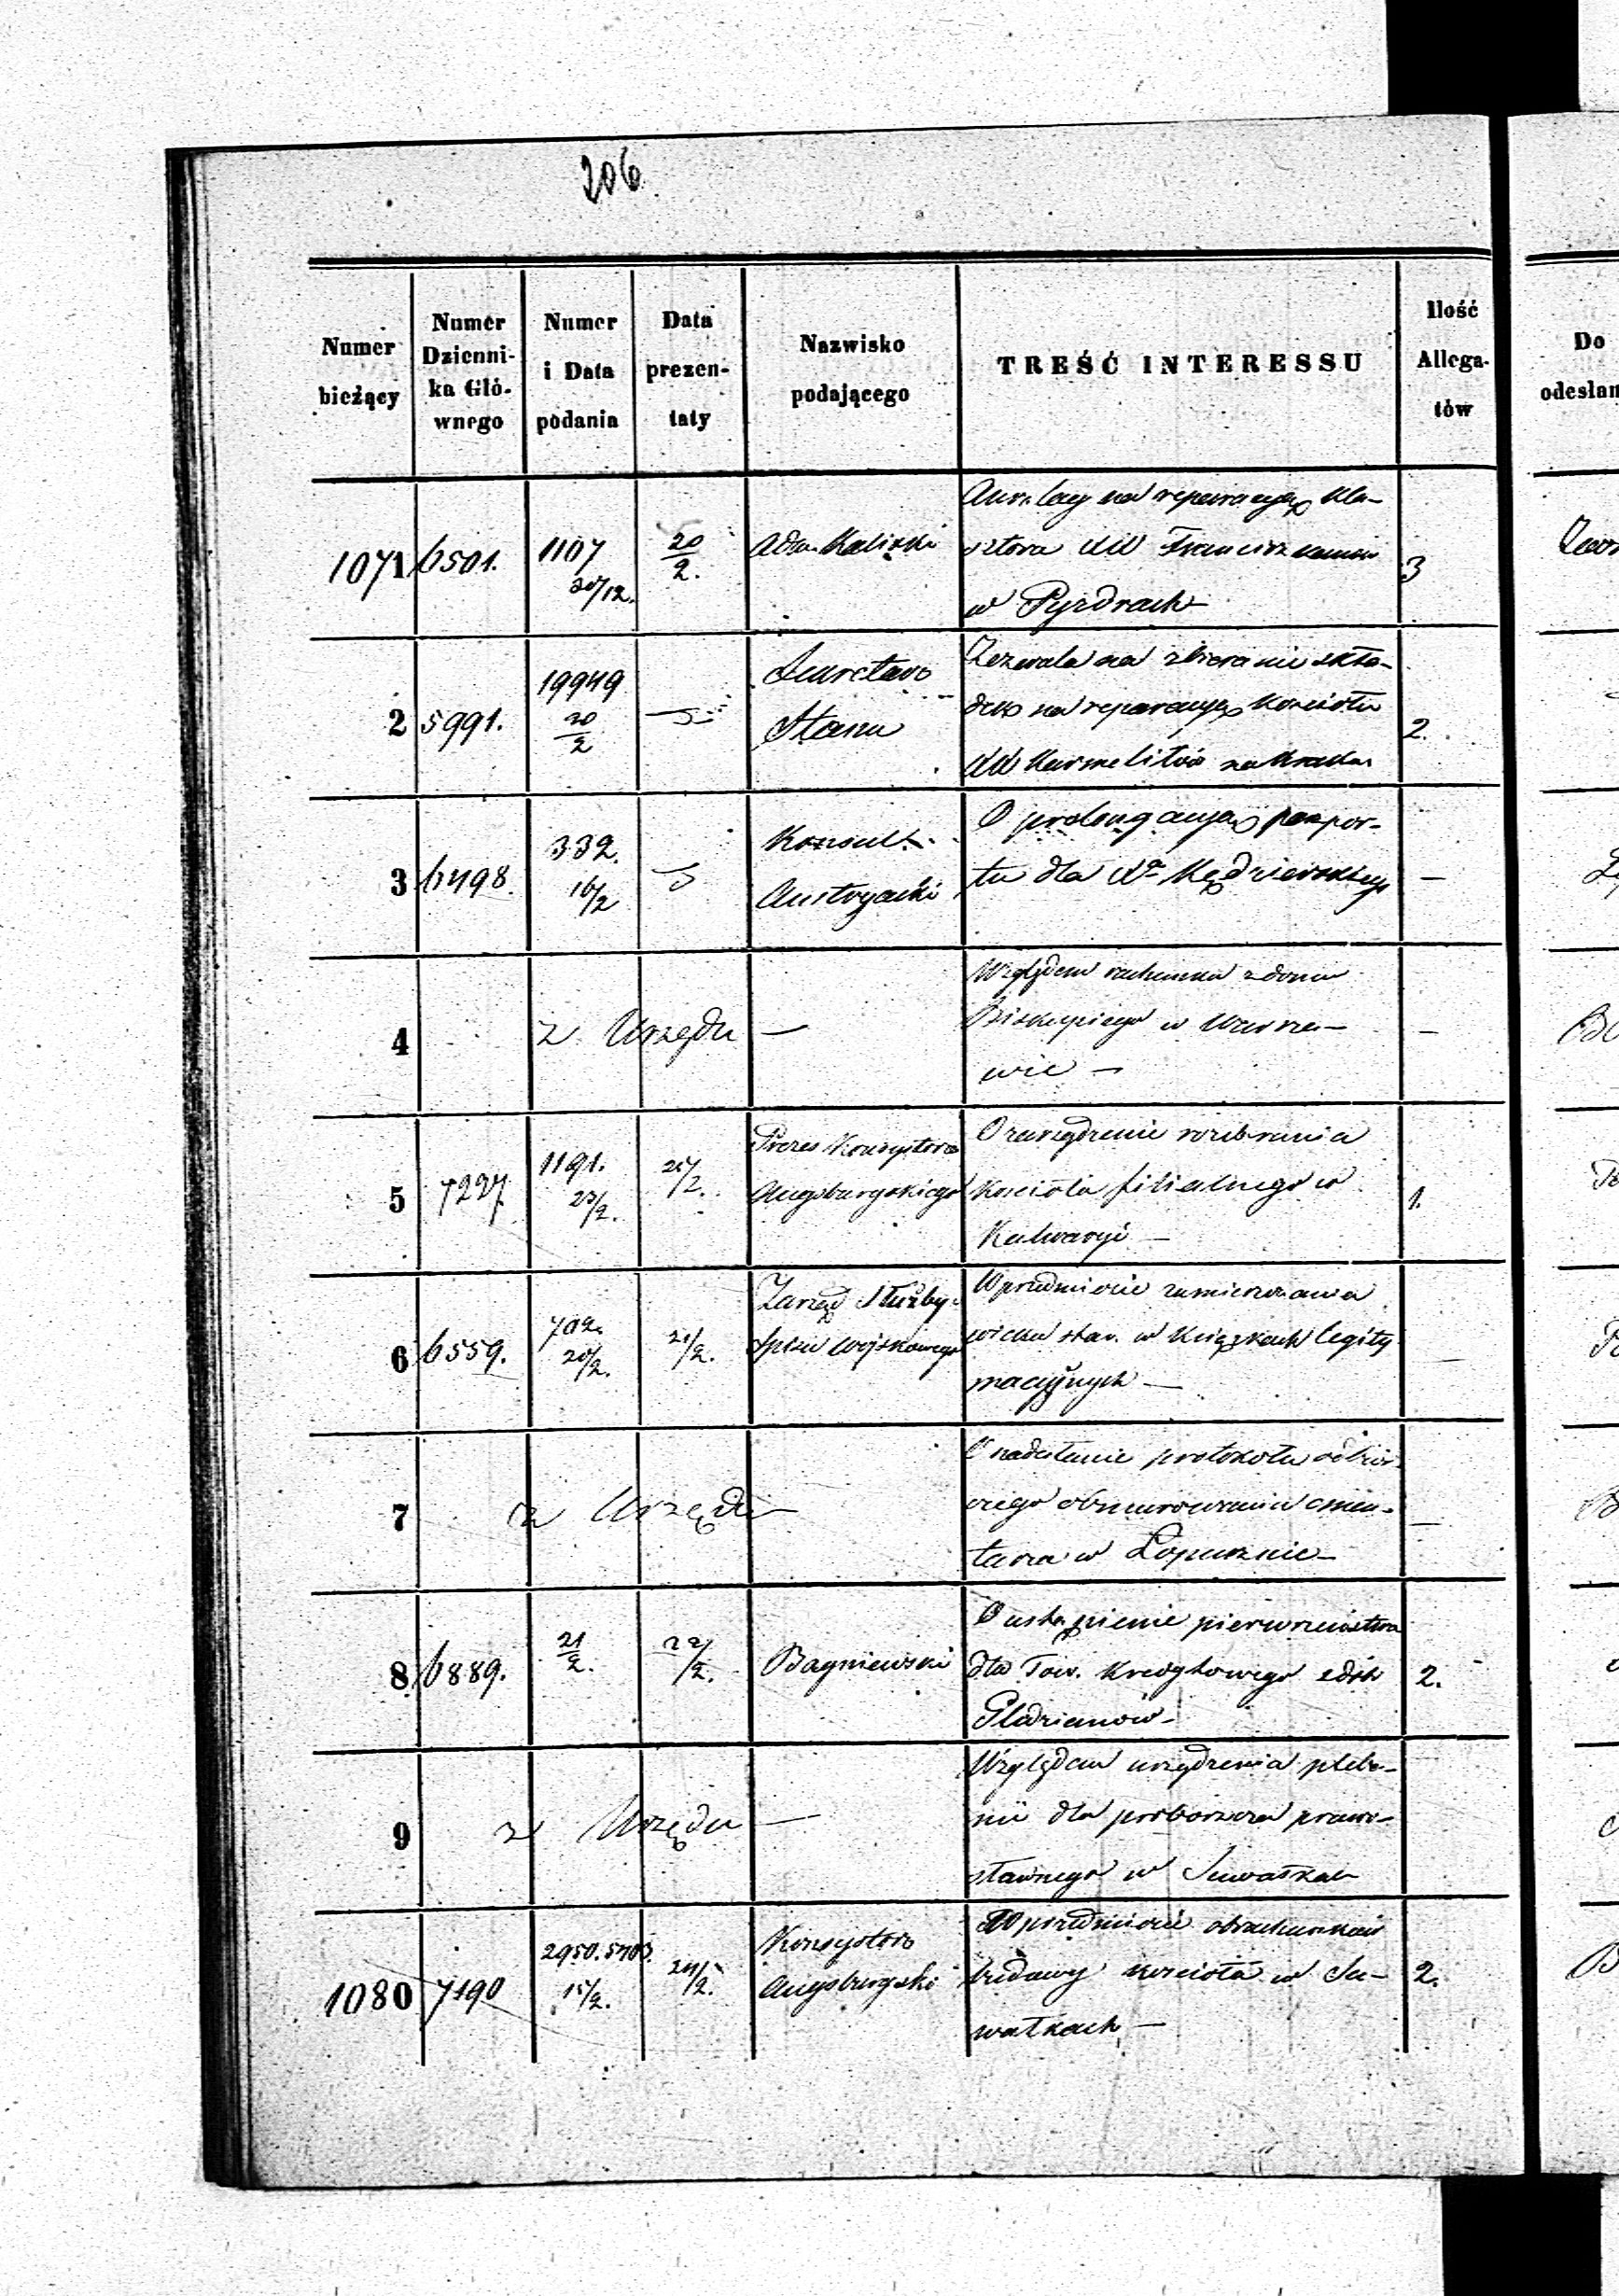 206
Numer bieżący
Numer Dzienni-ka Głó-wnego
Numer i Data podania
Data prezen-taty
Nazwisko podającego
TREŚĆ INTERESSU
Ilość Allega-tów
Do
odesłan
1071 6501. 1107 20/12. 20/2. Adm. Kaliski
na reperacyą kla-
sztoru XX Franciszkanów 3
w Pyzdrach
2 5991. 19949 20/2 Sekretarz
Stanu
Zezwala na zbieranie skła-
dek na reperacyą kościoła 2.
XX Karmelitów na Krak.
3 6498. 332. 16/2 Konsul
Austryacki
O prolongacyą paszpor-
tu dla Xa Kędzierskiego —
4 z Urzędu —
Względem rachunku z domu
Biskupiego w Warsza- —
wie —
5 7227 1191. 23/2. 25/2. Prezes Konsystorza
Augsburgskiego
O zarządzenie rozebrania
Kościoła filialnego w 1.
Kalwaryi —
6 6559. 702. 20/2. 21/2. Zarząd Służby
Spisu Wojskowego
W przedmiocie zamieszczania
wieku w Książkach legity-
macyjnych —
7 z Urzędu —
O nadesłanie protokołu odbior-
czego obmurowania cmen- —
tarza w Łopusznie —
8 6889. 21/2. 22/2. Bagniewski
O ustąpienie pierwszeństwa
dla Tow. Kredytowego z dóbr 2.
9 z Urzędu —
Względem urządzenia pleba-
nii dla proboszcza prawo-
sławnego w Suwałkach
1080 7190 2950. 5703. 15/2. 24/2. Konsystorz
Augsburgski
W przedmiocie obrachunków
budowy kościoła w Su- 2.
wałkach —